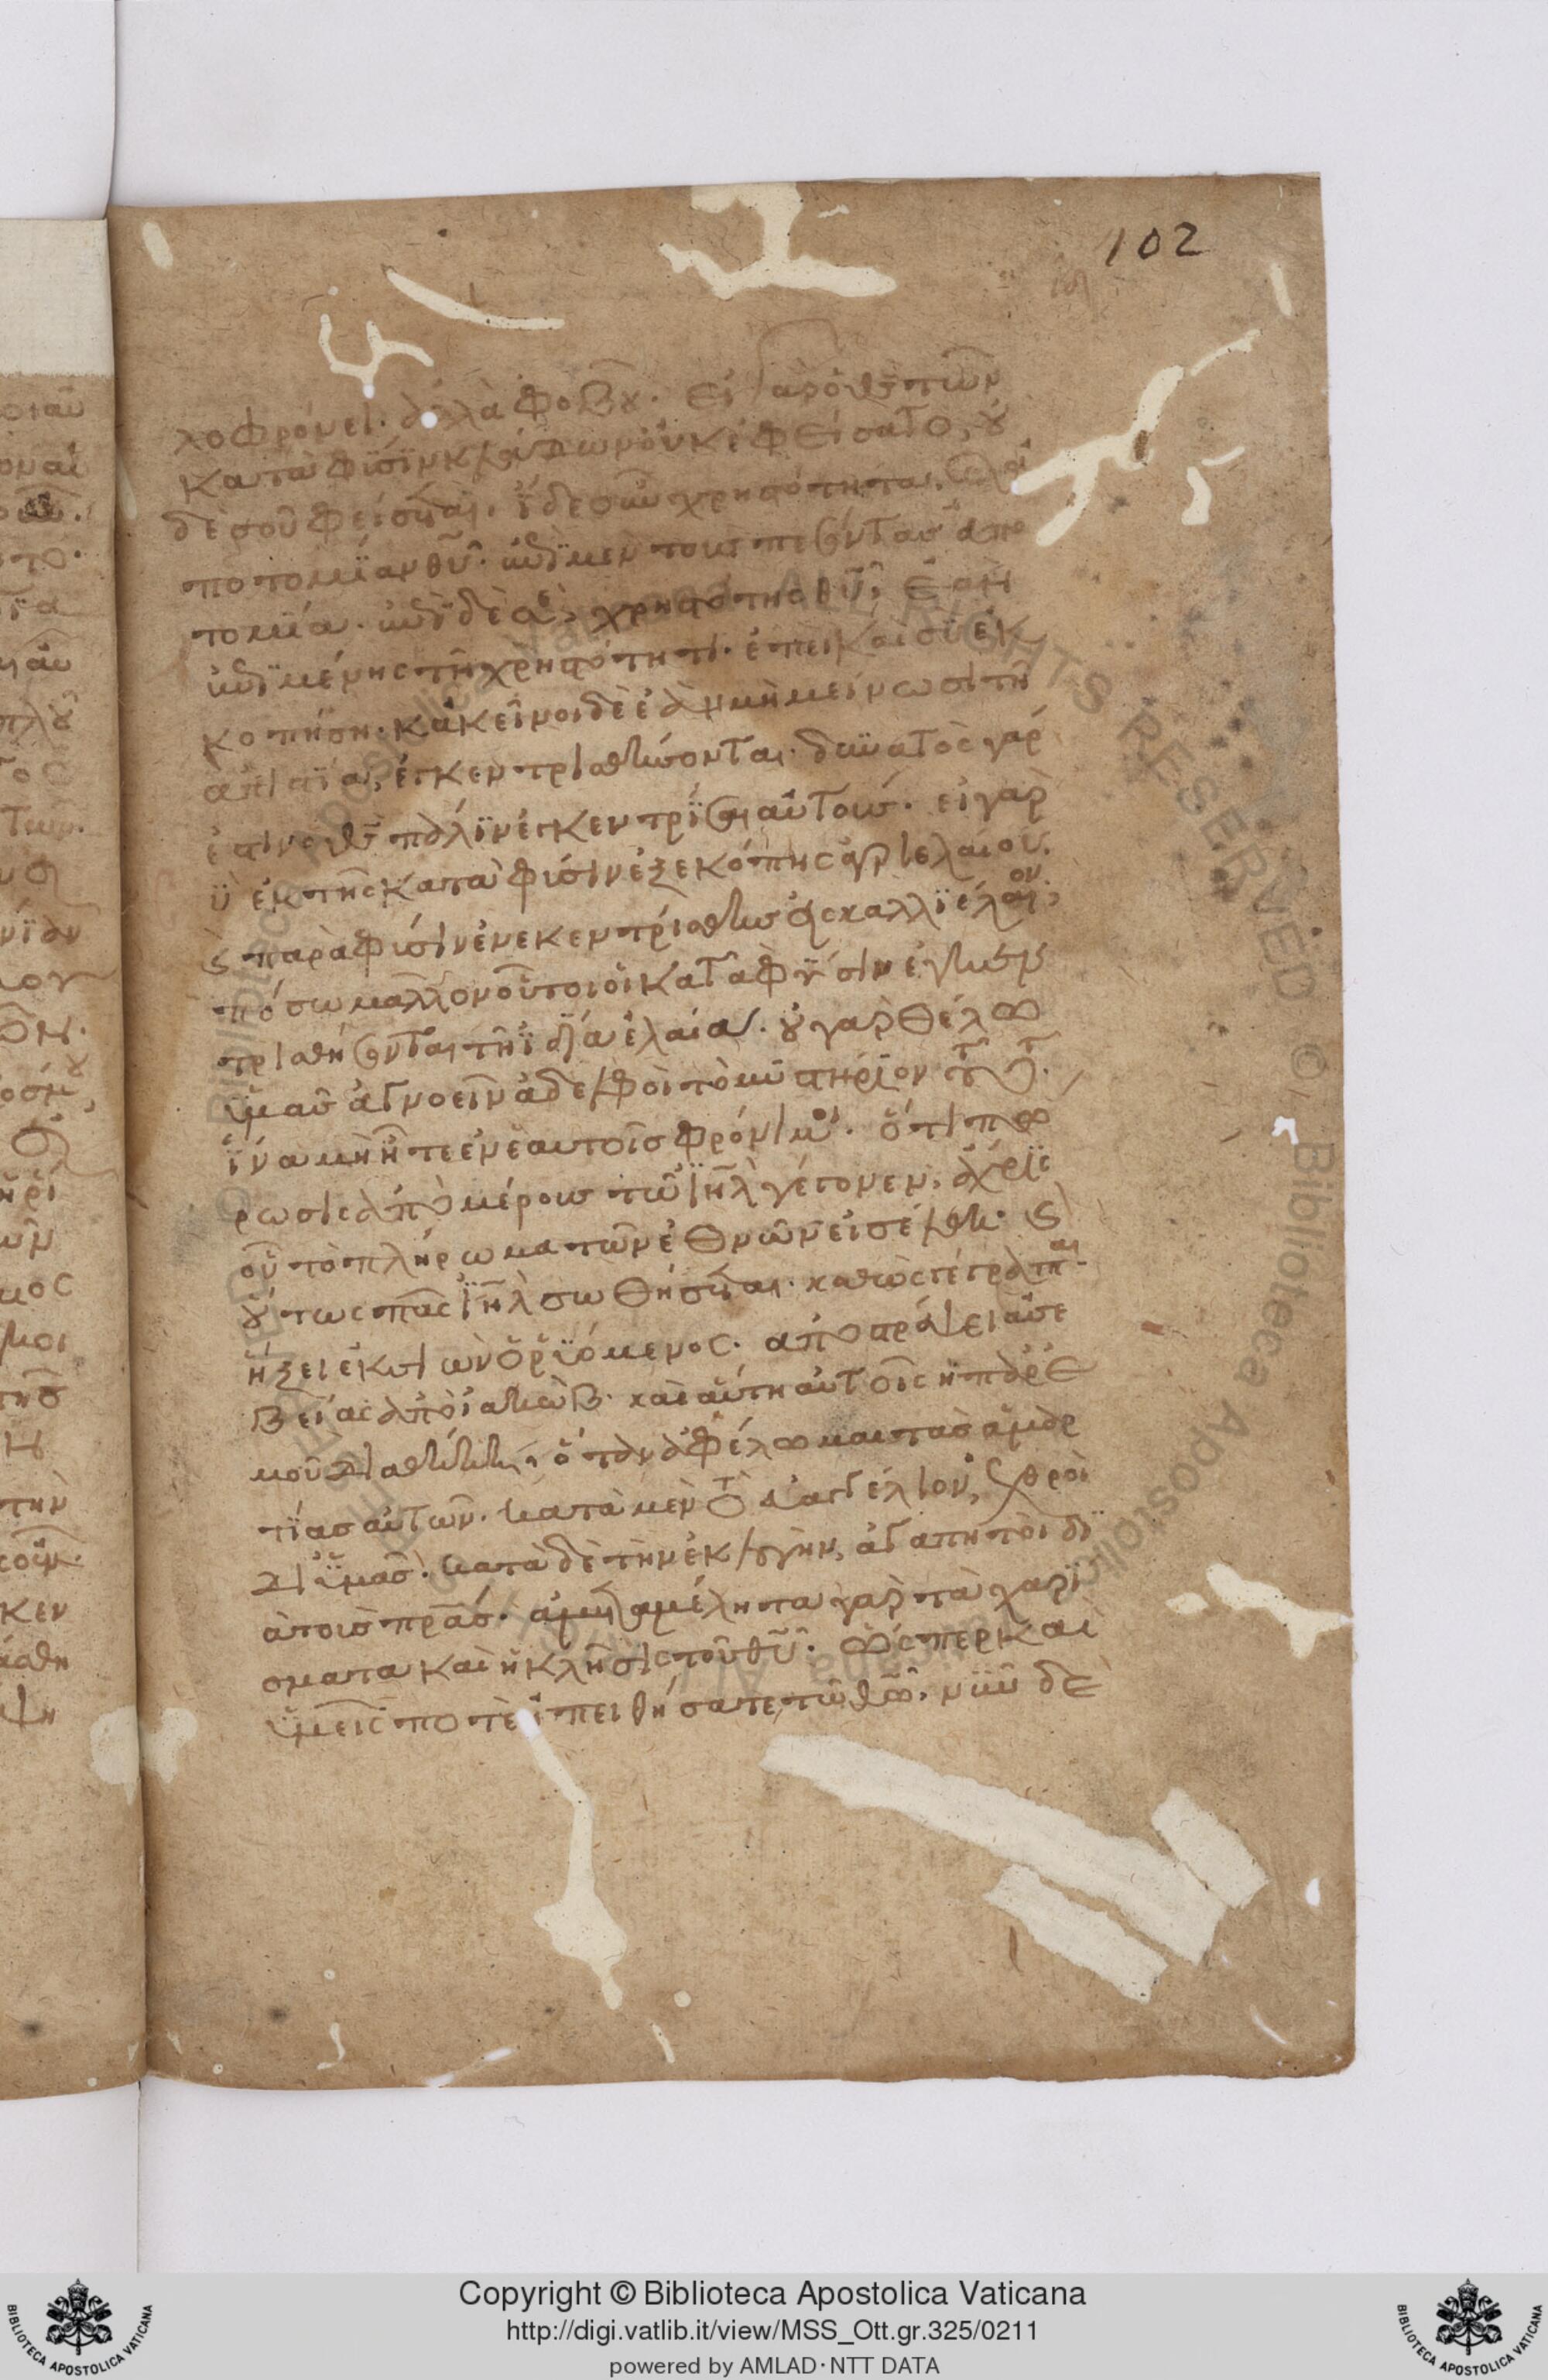 102
λοφρόνει· ἀλλὰ φοβοῦ· εἰ γὰρ ὁ θ̅ς̅ τῶν
κατὰ φϊσϊν κλάδων οὐκ ἐφείσατο, οὐ
δὲ σοῦ φείσηται· ἴδε οὖν χρηστότητα, καὶ ἀ
ποτομϊαν θ̅υ̅· ἐπϊ μὲν τοὺς πεσόντας ἀπο
τομία· ἐπϊ δὲ σὲ, χρηστότης θ̅υ̅, ἐὰν
ἐπϊμένης τῆ χρηστότητι· ἐπεὶ καὶ σὺ ἐκ
κοπήση· κἀκεῖνοι δὲ ἐὰν μὴ μείνωσι τῆ
ἀπιστία, ἐγκεντρισθήσονται· δυνατὸς γάρ
ἐστιν ὁ θ̅ς̅ πάλϊν ἐγκεντρίσαι αὐτούς· εἰ γὰρ
ὺ ἐκ τῆς κατὰ φύσιν ἐξεκόπης ἀγριελαίου·
ϗ παρὰ φύσιν ἐνεκεντρίσθης εἰς καλλϊέλαιον,
πόσω μᾶλλον οὗτοι οἱ κατὰ φύσιν ἐγκεν
τρισθήσονται τῆ ἰδία ἐλαία· οὐ γὰρ θέλω
ὑμᾶς ἀγνοεῖν ἀδελφοὶ τὸ μυστήριον τοῦτο·
ἵνα μὴ ἦτε ἐν ἑαυτοῖς φρόνιμοι· ὅτι πω
ρωσις ἀπὸ μέρους τῶ ι̅η̅λ̅ γέγονεν, ἄχρϊς
οὗ τὸ πλήρωμα τῶν ἐθνῶν εἰσέλθη· ϗ
οὕτως πᾶς ι̅η̅λ̅ σωθήσεται· καθὼς γέγραπται·
ἥξει ἐκ σιὼν ὁ ῥϋόμενος· ἀποστρέψει ἀσε
βείας ἀπὸ ἰακώβ· καὶ αὕτη αὐτοῖς ἡ παρ' ἐ
μοῦ διαθήκη, ὅταν ἀφέλωμαι τὰς ἁμαρ
τίας αὐτῶν· κατὰ μὲν τὸ εὐαγγέλιον, ἐχθροὶ
δι' ὑμᾶς· κατὰ δὲ τὴν ἐκλογὴν, ἀγαπητοὶ δϊ
ὰ τοὺς π̅ρ̅α̅ς̅· ἀμεταμέλητα γὰρ τὰ χαρί
σματα καὶ ἡ κλῆσις τοῦ θ̅υ̅· ὥσπερ καὶ
ὑμεῖς ποτὲ ἠπειθήσατε τῶ θ̅ω̅, νῦν δὲ
Copyright © Biblioteca Apostolica Vaticana
http://digi.vatlib.it/view/MSS_Ott.gr.325/0211
powered by AMLAD·NTT DATA